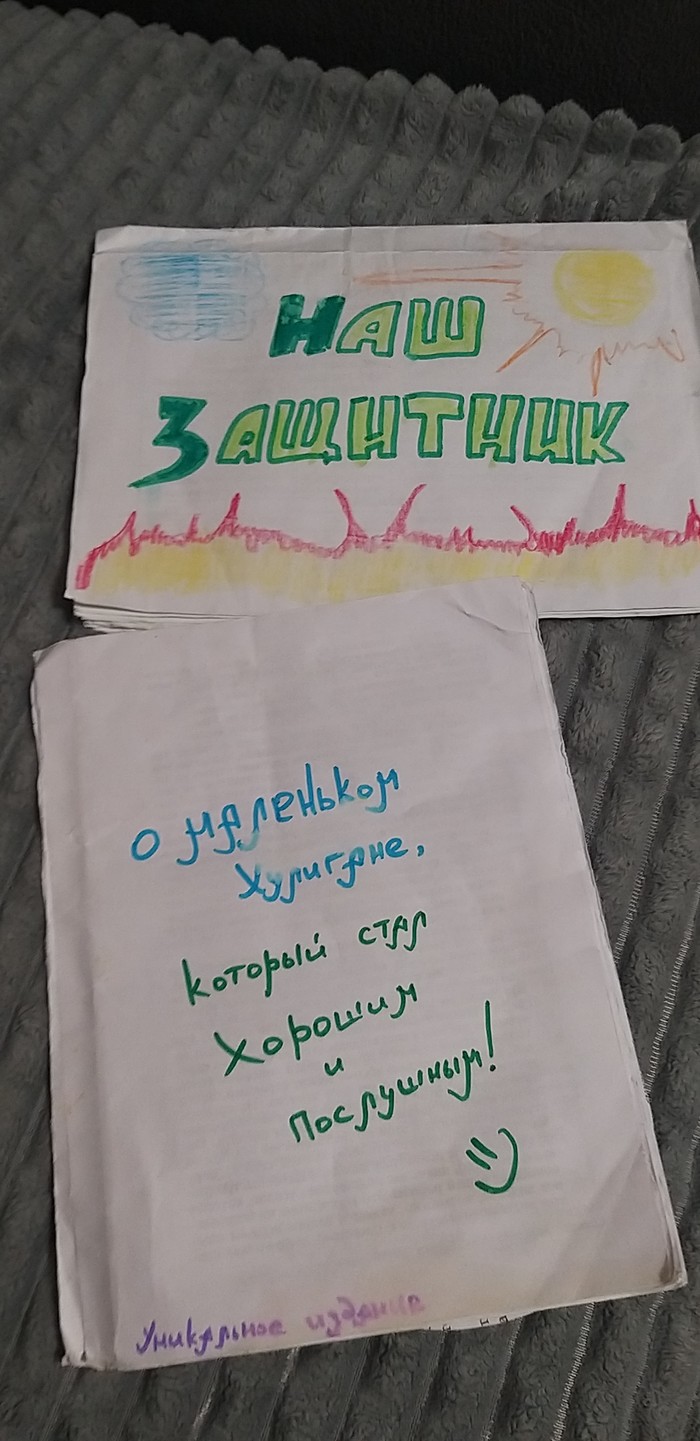 НАШ
ЗАЩИТНИК
О маленьком
хулигане,
который стал
хорошим
и
послушным!
Уникальное издание